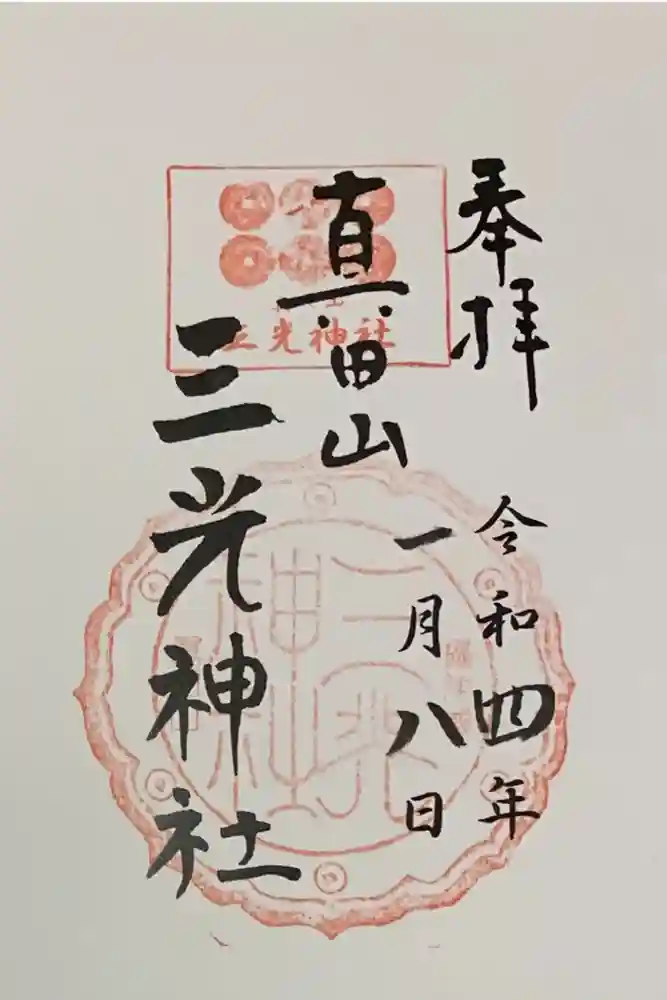 奉拝
令和四年
一月八日
真田山
三光神社
三光神社